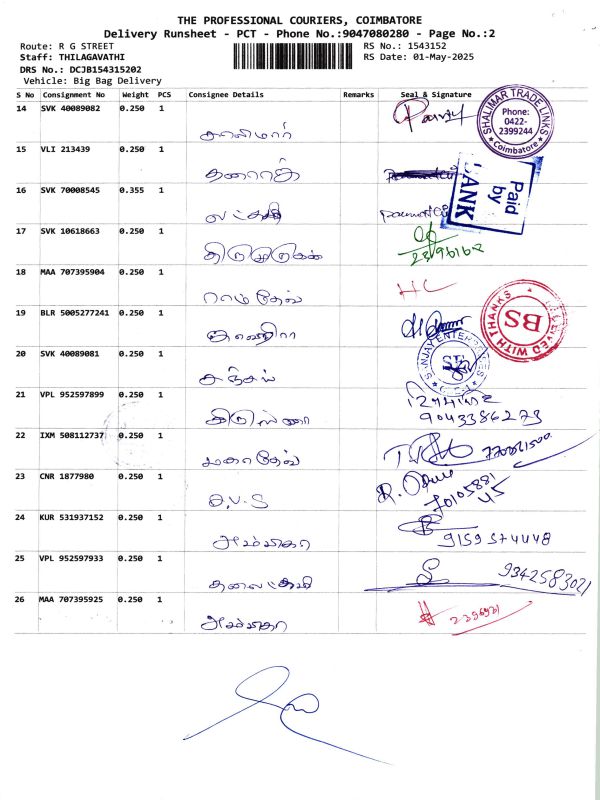 THE PROFESSIONAL COURIERS, COIMBATORE
Delivery Runsheet - PCT - Phone No.:9047080280 - Page No.:2
Route: R G STREET
RS No.: 1543152
Staff: THILAGAVATHI
RS Date: 01-May-2025
DRS No.: DCJB154315202
Vehicle: Big Bag Delivery
S No Consignment No Weight PCS Consignee Details Remarks Seal & Signature
14 SVK 40089082 0.250 1
சாலிமார்
SHALIMAR TRADE LINKS
Phone:
0422-
2399244
Coimbatore
15 VLI 213439 0.250 1
Paid
by
BANK
16 SVK 70008545 0.355 1
17 SVK 10618663 0.250 1
திருமுருகன்
18 MAA 707395904 0.250 1
ராம்தேவ்
HC
19 BLR 5005277241 0.250 1
RECEIVED WITH THANKS
BS
20 SVK 40089081 0.250 1
சஞ்சய்
SANJAY ENTERPRISES
21 VPL 952597899 0.250 1
9043386273
22 IXM 508112737 0.250 1
மகாதேவ்
23 CNR 1877980 0.250 1
24 KUR 531937152 0.250 1
அம்பிகா
9159574448
25 VPL 952597933 0.250 1
9342583021
26 MAA 707395925 0.250 1
அம்பிகா